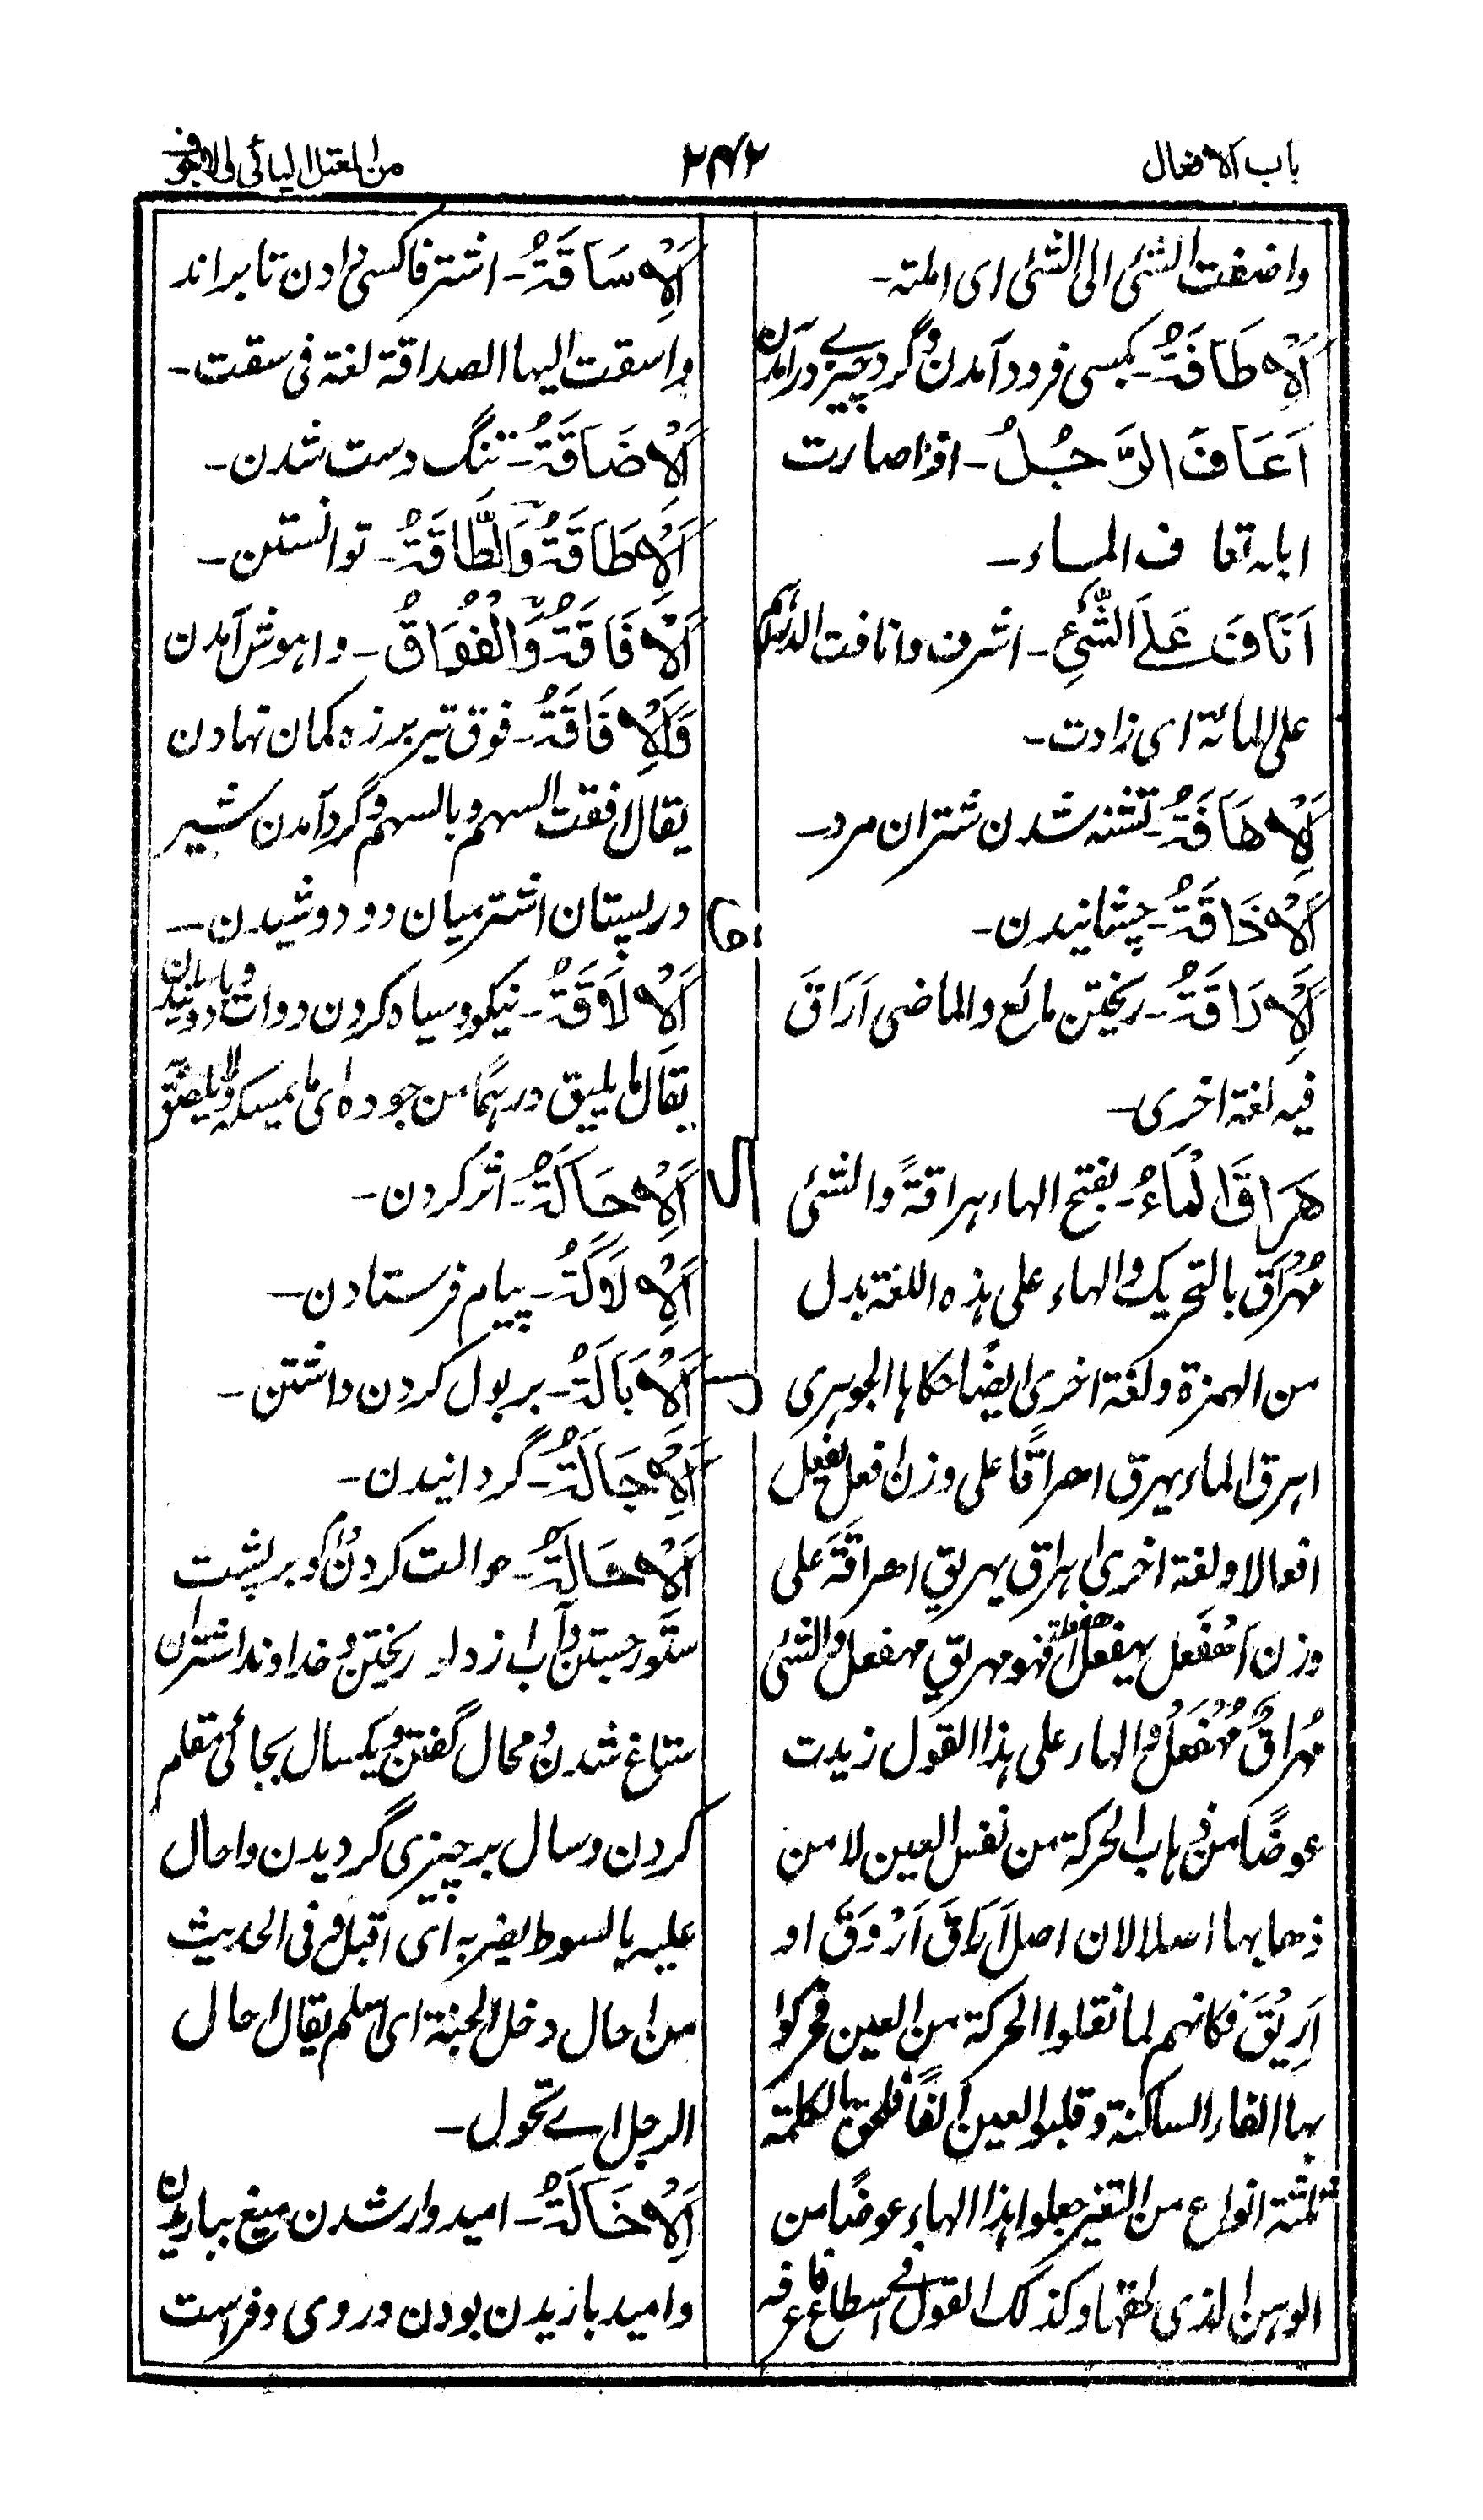 باب الافعال
٢٤٢
من المعتل اليائى والاجوف
واضفت الشئ الى الشئ اى املته۔
اَلْاِطَافَةُ۔ بکسی فرود آمدن و گرد چیزے درآمدن
اَعَافَ الرَّجُلُ۔ اذا صارت
ابله تعاف الماء۔
اَنَافَ عَلَى الشَّئِ۔ اشرف وانافت الدراهم
على المائة اى زادت۔
اَلْاِهَافَةُ۔ تشنه شدن شتران مرد۔
اَلْاِذَاقَةُ۔ چشانیدن۔
اَلْاِرَاقَةُ۔ ریختن مائع والماضى اَرَاقَ
فيه لغة اخرى۔
هَرَاقَ الْمَاءُ۔ بفتح الهاء هراقةً والشئ
مُهَرَاقٌ بالتحريك والهاء على هذه اللغة بدل
من الهمزة ولغة اخرى ايضًا حكاها الجوهرى
اهرق الماء يهرق اهراقًا على وزن افعل يفعل
افعالا ولغة اخرى اهراق يهريق اهراقةً على
وزن اَهْفَعل يهفعل فهو مهريق مهفعل والشئ
مُهْرَاقٌ مُهْفَعَلٌ والهاء على هذا القول زيدت
عوضًا من ذهاب الحركة من نفس العين لا من
ذهابها اصلا لان اصل اَرَاقَ اَرْوَقَ او
اَرْيَقَ فكانهم لما نقلوا الحركة من العين فحركوا
بها الفاء الساكنة وقلبوا العين الفًا فلحق بالكلمة
ثلثة انواع من التغير جعلوا هذا الهاء عوضًا من
الوهن الذى لحقها وكذلك القول فى اسطاع فاعرفه
اَلْاِسَاقَةُ۔ اشتر فاکسی دادن تا براند
واسقت اليها الصداقة لغة فى سقت۔
اَلْاِضَاقَةُ۔ تنگ دست شدن۔
اَلْاِطَاقَةُ وَالطَّاقَةُ۔ توانستن۔
اَلْاِفَاقَةُ وَالْفُوَاقُ۔ واهوش آمدن
وَالْاِفَاقَةُ۔ فوق تیر بر زه کمان نهادن
يقال افقت السهم وبالسهم و گرد آمدن شیر
در پستان اشتر میان دو دوشیدن۔
ق
اَلْاِلَاقَةُ۔ نیکو و سیاه کردن دوات
يقال ما يليق درهمًا من جوده اى ما يمسكه
ك
اَلْاِحَاكَةُ۔ اثر کردن۔
اَلْاِلَاكَةُ۔ پیام فرستادن۔
ل
اَلْاِبَالَةُ۔ بر بول کردن داشتن۔
اَلْاِجَالَةُ۔ گردانیدن۔
اَلْاِحَالَةُ۔ حوالت کردن و بر پشت
ستور جستن و آب از دلو ریختن و خداوند اشتران
ستاغ شدن و محال گفتن و یکسال بجائی مقام
کردن و سال بر چیزی گردیدن واحال
عليه بالسوط يضربه اى اقبل وفى الحديث
من احال دخل الجنة اى اسلم يقال احال
الرجل اے تحول۔
اَلْاِخَالَةُ۔ امیدوار شدن میغ بباریدن
وامید باریدن بودن در وى وفراست